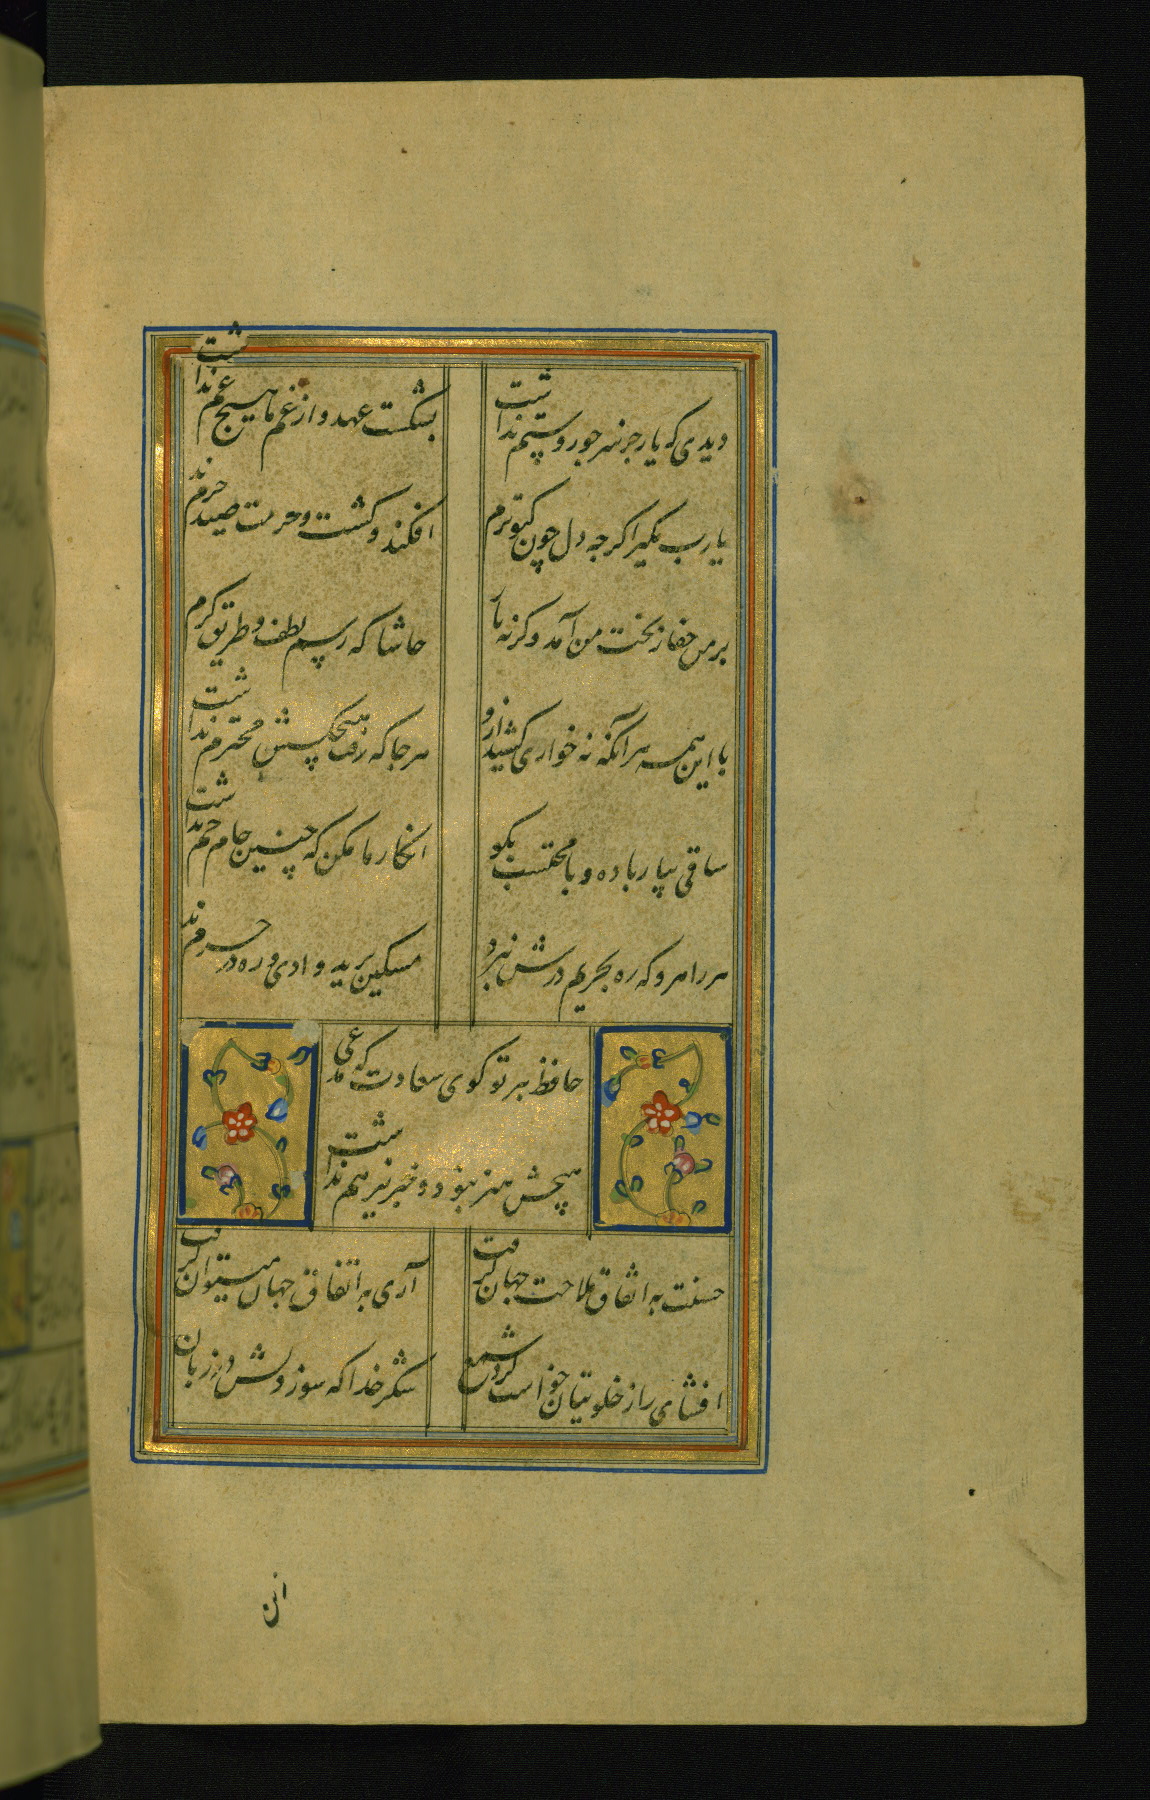 دیدی که یار جز سر جور و ستم نداشت
بشکست عهد و از غم ما هیچ غم نداشت
یارب مگیر اگرچه دل چون کبوترم
افکند و کشت و حرمت صید حرم ند
بر من جفا ز بخت من آمد وگرنه یار
حاشا که رسم لطف و طریق کرم
با این همه هر آنکه نه خواری کشید ازو
هر جا که رفت هیچکسش محترم نداشت
ساقی بیار باده و با محتسب بگو
انکار ما مکن که چنین جام جم نداشت
هر راهرو که ره بحریم درش نبرد
مسکین برید وادی و ره در حرم ند
حافظ ببر تو گوی سعادت که مدعی
هیچش هنر نبود و خبر نیز هم نداشت
حسنت به اتفاق ملاحت جهان گرفت
آری به اتفاق جهان میتوان گرفت
افشای راز خلوتیان خواست کرد شمع
شکر خدا که سوز دلش در زبان